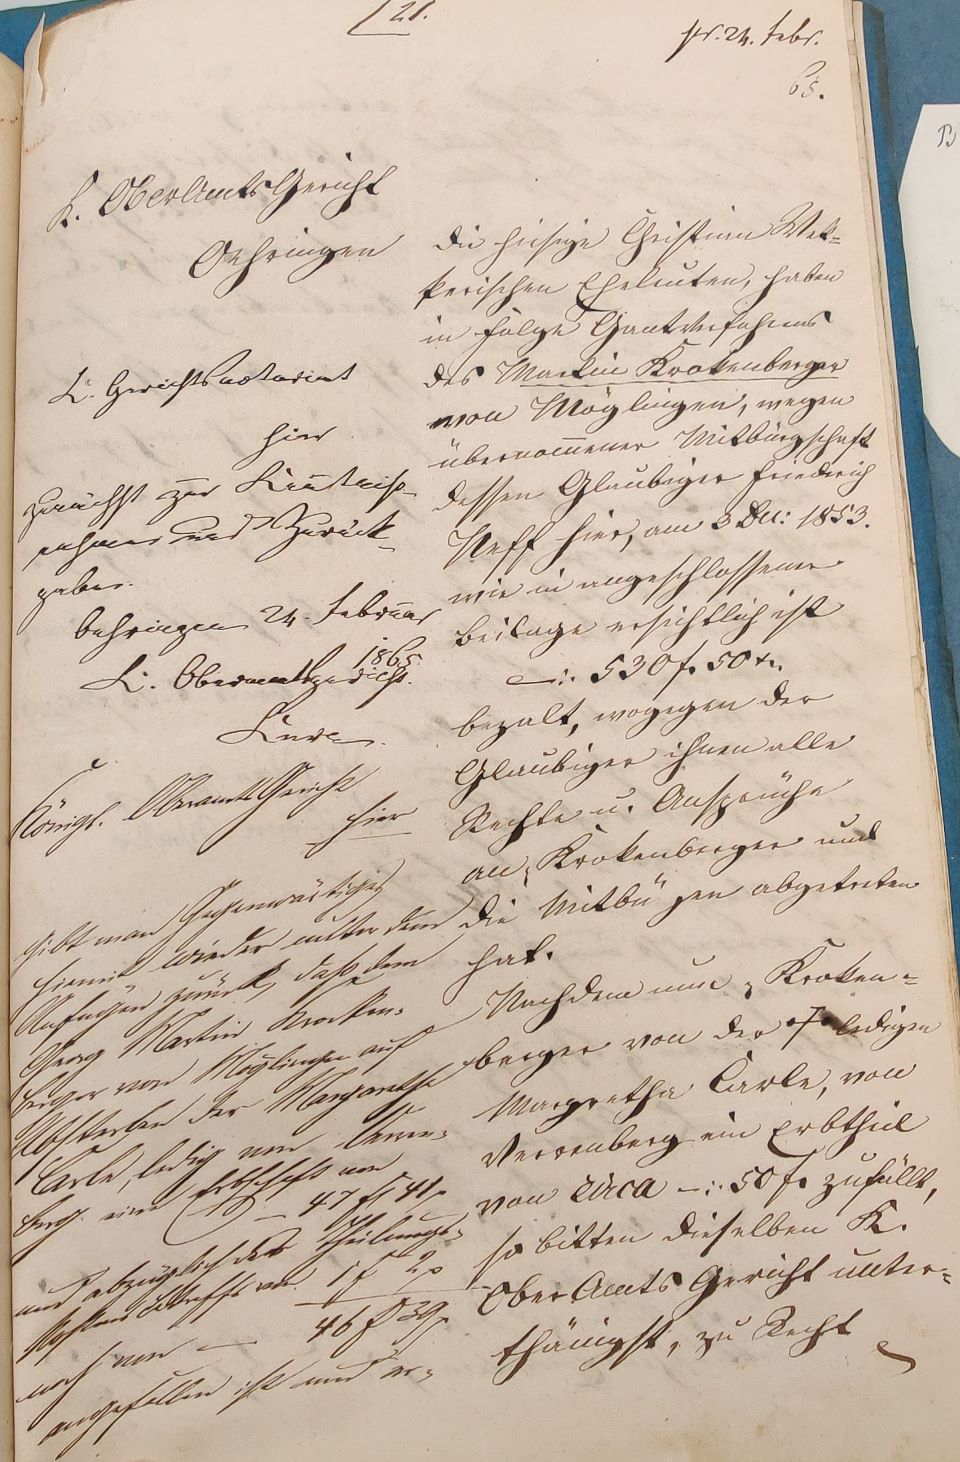 21.
pr. 24. Febr.
65.
K. OberAmtsGericht
Oehringen
K. Gerichtsnotariat
hier
zunächst zur Kenntniß-
nahme und Zurück-
gabe.
Oehringen 24. Februar
1865.
K. Oberamtsgericht.
Königl. OberamtsGericht
hier
gibt man Gegenwärtiges
hiemit wieder unter dem
Anfügen zurück, daß dem
Georg Martin Krocken-
berger von Möglingen auf
Absterben der Margaretha
Carle, ledig von Verren-
berg eine Erbschaft von
— 47 f 41
und abzüglich des Theilungs-
kosten Betreffs von 1 f 2
noch von — 46 f 39
angefallen ist und er-
die hiesige Christian Wek-
kerischen Eheleuten, haben
in Folge Gantverfahrens
des Martin Krokenberger
von Möglingen, wegen
übernommener Mitbürgschaft
dessen Glaubiger Friederich
Neff hier, am 3 Dec: 1853.
wie in angeschlossener
Beilage ersichtlich ist
—:. 530 f. 50 xr.
bezalt, wogegen der
Glaubiger ihnen alle
Rechte u. Ansprüche
an Krokenberger und
die Mitbürgen abgetreten
hat.
Nachdem nun Kroken-
berger von der † ledigen
Margretha Carle, von
Verrenberg ein Erbtheil
von circa —:. 50 f. zufällt,
so bitten dieselben K.
OberAmtsGericht unter-
thänigst, zu Recht